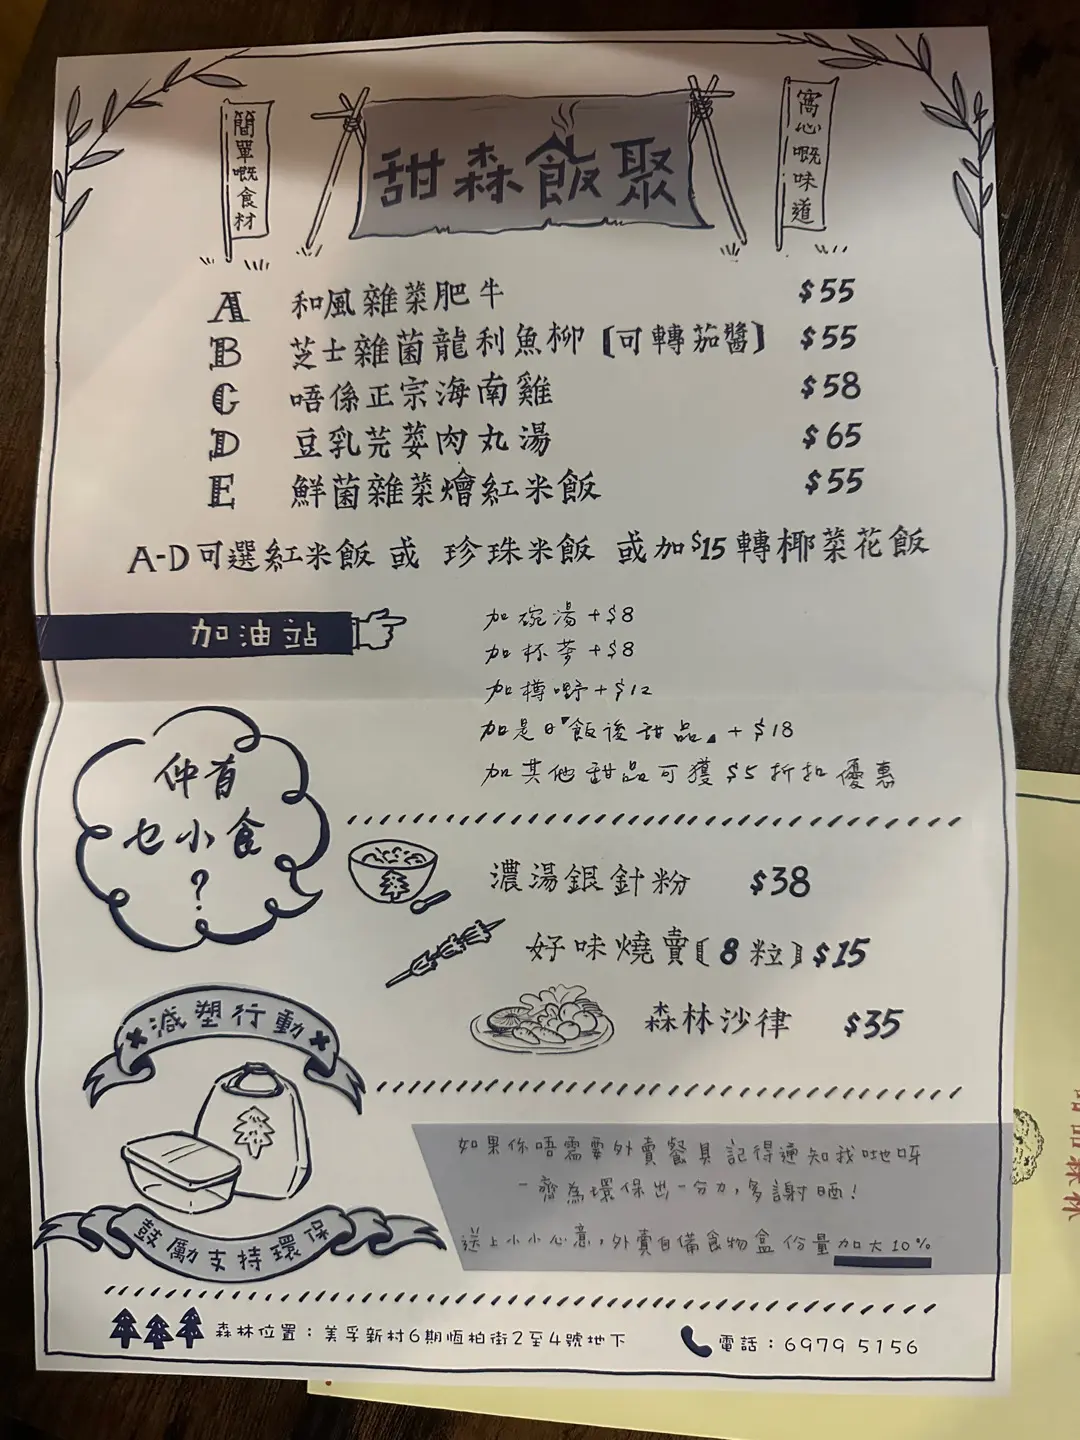 簡單嘅食材
甜森飯聚
窩心嘅味道
A 和風雜菜肥牛 $55
B 芝士雜菌龍利魚柳〔可轉茄醬〕 $55
C 唔係正宗海南雞 $58
D 豆乳芫荽肉丸湯 $65
E 鮮菌雜菜燴紅米飯 $55
A-D可選紅米飯 或 珍珠米飯 或加$15轉椰菜花飯
加油站
加碗湯+$8
加杯茶+$8
加樽嘢+$12
加是日「飯後甜品」+$18
加其他甜品可獲$5折扣優惠
仲有
乜小食
?
濃湯銀針粉 $38
好味燒賣〔8粒〕$15
森林沙律 $35
減塑行動
鼓勵支持環保
如果你唔需要外賣餐具記得通知我哋呀
一齊為環保出一分力,多謝晒!
送上小小心意,外賣自備食物盒 份量加大10%
森林位置:美孚新村6期恆柏街2至4號地下
電話:6979 5156